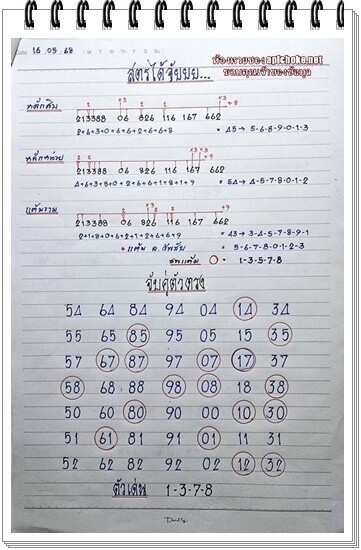 16.05.68
M T W T F S S
ห้องหวยซอง aptchoke.net
ขอบคุณเจ้าของข้อมูล
สูตรได้จุ๊บยย...
หลักสิบ
2 +5 2 2 +3 +3 +8
213388 06 826 116 167 662
2+6+3+0+6+6+2+6+6+8 = 45 → 5-6-8-9-0-1-3
หลักหน่วย
2 2 +3 +3 +9
213388 06 826 116 167 662
4+6+3+8+0+2+6+6+1+8+1+9 = 54 → 4-5-7-8-0-1-2
แต้มรวม
213388 06 826 116 167 662
2+1+8+0+6+2+1+2+6+9+6 = 43 → 3-4-5-7-8-9-1
5-6-7-8-0-1-2-3
= 1-3-5-7-8
จับคู่ตัวตรง
54 64 84 94 04 14 34
55 65 85 95 05 15 35
57 67 87 97 07 17 37
58 68 88 98 08 18 38
50 60 80 90 00 10 30
51 61 81 91 01 11 31
52 62 82 92 02 12 32
ตัวเด่น 1-3-7-8